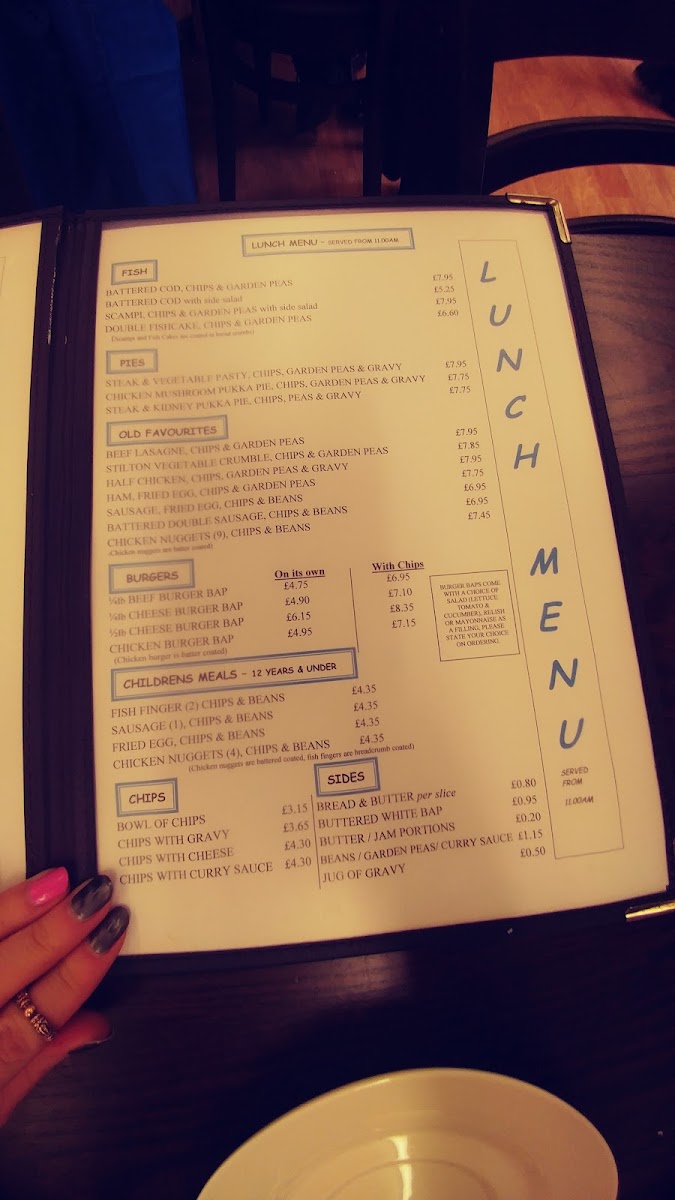 LUNCH MENU - SERVED FROM 11.00AM
FISH
BATTERED COD, CHIPS & GARDEN PEAS £7.95
BATTERED COD with side salad £5.25
SCAMPI, CHIPS & GARDEN PEAS with side salad £7.95
DOUBLE FISHCAKE, CHIPS & GARDEN PEAS £6.60
(Scampi and Fish Cakes are coated in bread crumbs)
PIES
STEAK & VEGETABLE PASTY, CHIPS, GARDEN PEAS & GRAVY £7.95
CHICKEN MUSHROOM PUKKA PIE, CHIPS, GARDEN PEAS & GRAVY £7.75
STEAK & KIDNEY PUKKA PIE, CHIPS, PEAS & GRAVY £7.75
OLD FAVOURITES
BEEF LASAGNE, CHIPS & GARDEN PEAS £7.95
STILTON VEGETABLE CRUMBLE, CHIPS & GARDEN PEAS £7.85
HALF CHICKEN, CHIPS, GARDEN PEAS & GRAVY £7.95
HAM, FRIED EGG, CHIPS & GARDEN PEAS £7.75
SAUSAGE, FRIED EGG, CHIPS & BEANS £6.95
BATTERED DOUBLE SAUSAGE, CHIPS & BEANS £6.95
CHICKEN NUGGETS (9), CHIPS & BEANS £7.45
(Chicken nuggets are batter coated)
BURGERS On its own With Chips
¼lb BEEF BURGER BAP £4.75 £6.95
¼lb CHEESE BURGER BAP £4.90 £7.10
½lb CHEESE BURGER BAP £6.15 £8.35
CHICKEN BURGER BAP £4.95 £7.15
(Chicken burger is batter coated)
BURGER BAPS COME
WITH A CHOICE OF
SALAD (LETTUCE
TOMATO &
CUCUMBER), RELISH
OR MAYONNAISE AS
A FILLING, PLEASE
STATE YOUR CHOICE
ON ORDERING.
CHILDRENS MEALS - 12 YEARS & UNDER
FISH FINGER (2) CHIPS & BEANS £4.35
SAUSAGE (1), CHIPS & BEANS £4.35
FRIED EGG, CHIPS & BEANS £4.35
CHICKEN NUGGETS (4), CHIPS & BEANS £4.35
(Chicken nuggets are battered coated, fish fingers are breadcrumb coated)
CHIPS
BOWL OF CHIPS £3.15
CHIPS WITH GRAVY £3.65
CHIPS WITH CHEESE £4.30
CHIPS WITH CURRY SAUCE £4.30
SIDES
BREAD & BUTTER per slice £0.80
BUTTERED WHITE BAP £0.95
BUTTER / JAM PORTIONS £0.20
BEANS / GARDEN PEAS/ CURRY SAUCE £1.15
JUG OF GRAVY £0.50
LUNCH MENU
SERVED
FROM
11.00AM